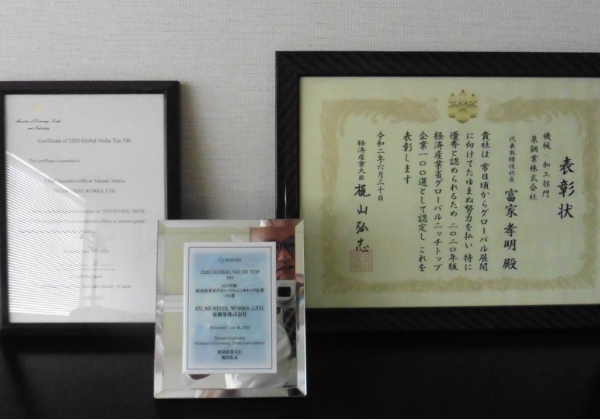 Minister of Economy, Trade
and Industry
Certificate of 2020 Global Niche Top 100
This certificate is awarded to
Chief Executive Officer Takaaki Tomiie
STEEL WORKS .LTD.
2020 GLOBAL NICHE TOP
100
2020年版
経済産業省グローバルニッチトップ企業
100選
IZUMI STEEL WORKS .LTD.
泉鋼業株式会社
June 30, 2020
Minister of Economy, Trade and Industry
経済産業大臣
梶山弘志
表彰状
機械・加工部門
泉鋼業株式会社
代表取締役社長 富家孝明 殿
貴社は常日頃からグローバル展開
に向けてたゆまぬ努力を払い 特に
優秀と認められるため 二〇二〇年版
経済産業省グローバルニッチトップ
企業一〇〇選として認定し これを
表彰します
令和二年六月三十日
経済産業大臣 梶山弘志